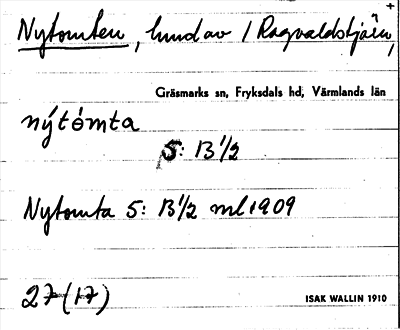 Nytomten, hmd av / Ragvaldstjärn,
Gräsmarks sn, Fryksdals hd, Värmlands län
nýtómta
5: B½
Nytomta 5: B½ ml 1909
27 (17)
ISAK WALLIN 1910